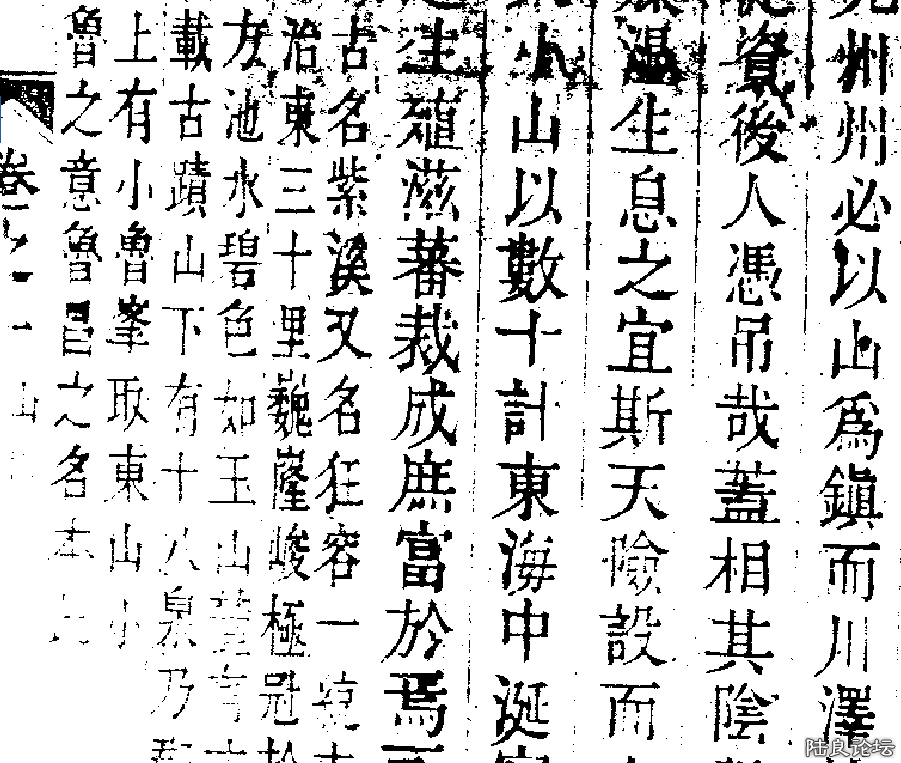 州州必以山為鎮而川澤
資後人憑吊哉蓋相其陰
溫生息之宜斯天險設而
小山以數十計東海中涎
生殖滋蕃栽成庶富於焉
古名紫溪又名狂容一
治東三十里巍窿峻極冠於
友池水碧色如玉山麓有
載古蹟山下有十八泉乃
上有小魯峯取東山小
魯之意魯昌之名本
卷一
山
陆良论坛